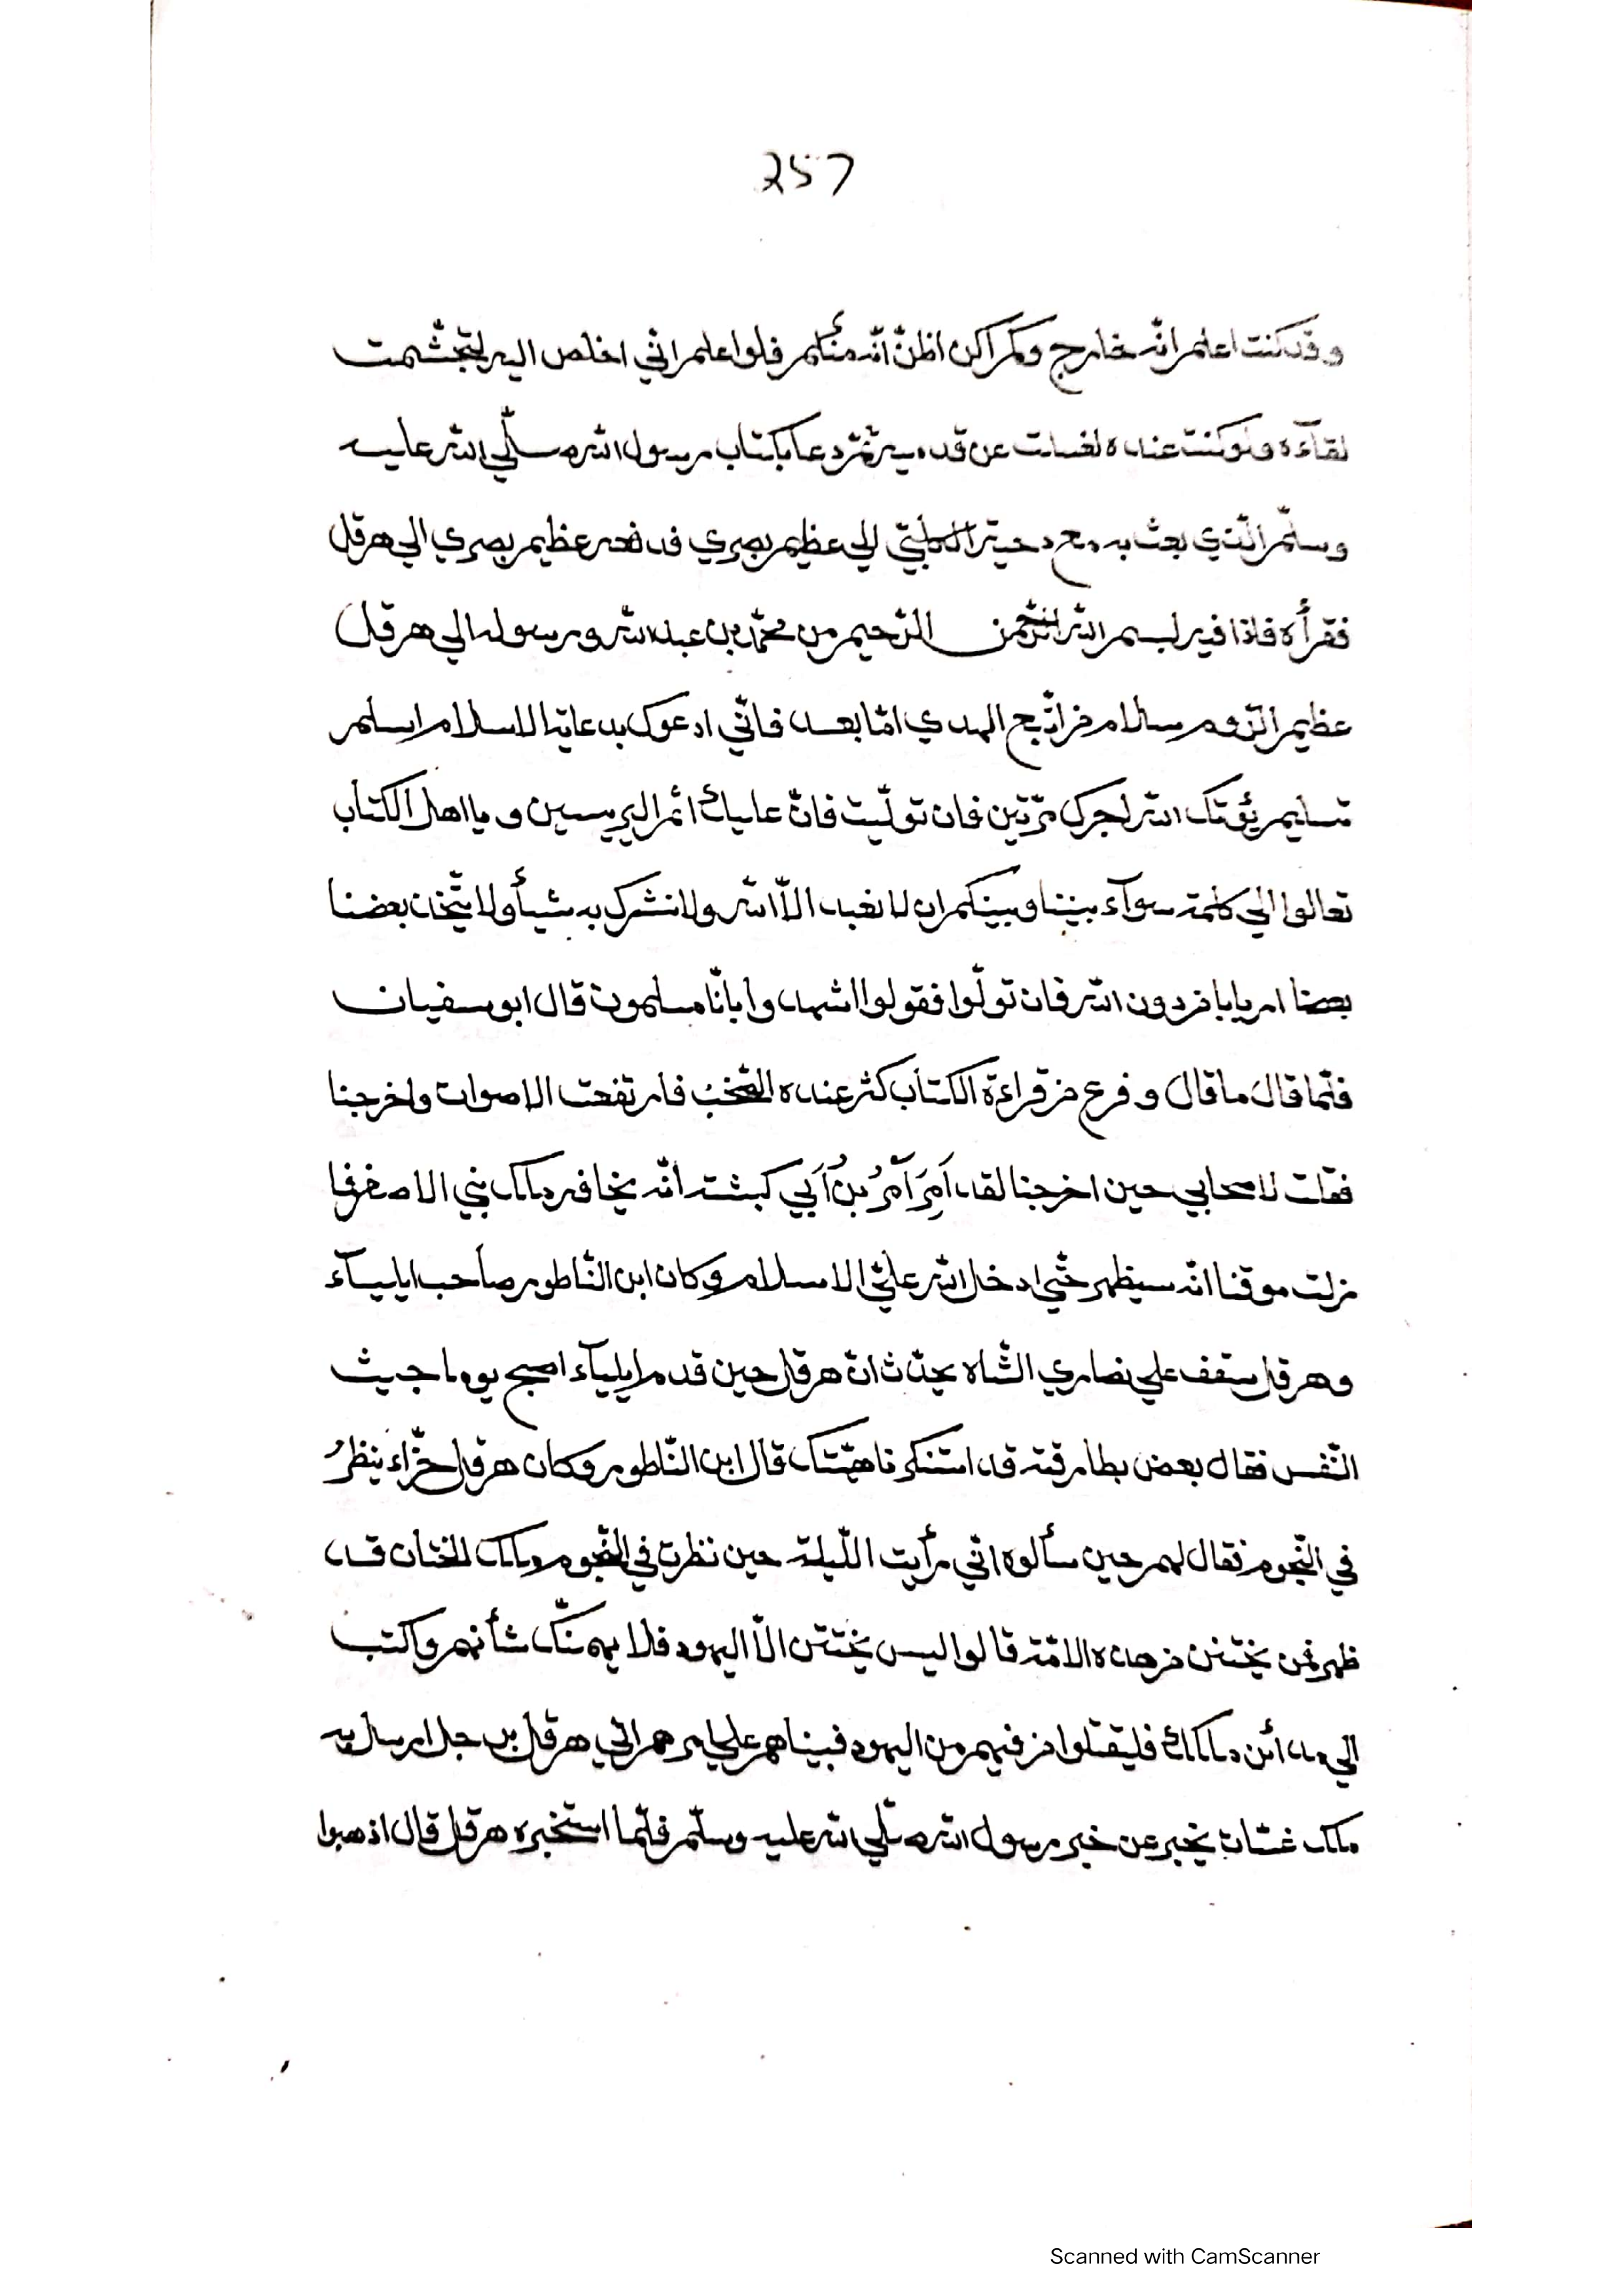 257
وقد كنت اعلم انّه خارج ولم اكن اظنّ انّه منكم فلو اعلم انّي اخلص اليه لتجشّمت
لقآءه ولو كنت عنده لغسلت عن قدميه ثمّ دعا بكتاب رسول الله صلّي الله عليه
وسلّم الّذي بعث به مع دحية الكلبيّ الي عظيم بصري فدفعه عظيم بصري الي هرقل
فقرأه فاذا فيه بسم الله الرّحمن الرّحيم من محمّد بن عبد الله ورسوله الي هرقل
عظيم الرّوم سلام من اتّبع الهدي امّا بعد فانّي ادعوك بدعاية الاسلام اسلم
تسليم يؤتك الله اجرك مرّتين فان تولّيت فانّ عليك اثم اليريسين و يا اهل الكتاب
تعالوا الي كلمة سوآء بيننا وبينكم ان لا نعبد الاّ الله ولا نشرك به شيأ ولا يتّخذ بعضنا
بعضا اربابا من دون الله فان تولّوا فقولوا اشهدوا بانّا مسلمون قال ابو سفيان
فلمّا قال ما قال و فرغ من قراءة الكتاب كثر عنده الصّخب فارتفعت الاصوات واخرجنا
فقلت لاصحابي حين اخرجنا لقد اَمِرَ اَمْرُ بنُ اَبي كبشة انّه يخافه ملك بني الاصفر فا
زلت موقنا انّه سيظهر حتّي ادخل الله عليّ الاسلام وكان ابن النّاطور صاحب ايليآء
وهرقل سقف علي نصاري الشّاه يحدّث انّ هرقل حين قدم ايليآء اصبح يوما خبيث
النّفس فقال بعض بطارقته قد استنكرنا هيّتتك قال ابن النّاطور وكان هرقل حزّاء ينظرُ
في النّجوم فقال لهم حين سألوه انّي رأيت اللّيلة حين نظرت في النّجوم ملك الختان قد
ظهر فمن يختتن من هذه الامّة قالوا ليس يختتن الاّ اليهود فلا يهمنّك شأنهم واكتب
الي مدائن ملكك فليقتلوا من فيهم من اليهود فبيناهم علي امرهم اتي هرقل برجل ارسل به
ملك غسّان يخبر عن خبر رسول الله صلّي الله عليه وسلّم فلمّا استخبره هرقل قال اذهبوا
Scanned with CamScanner